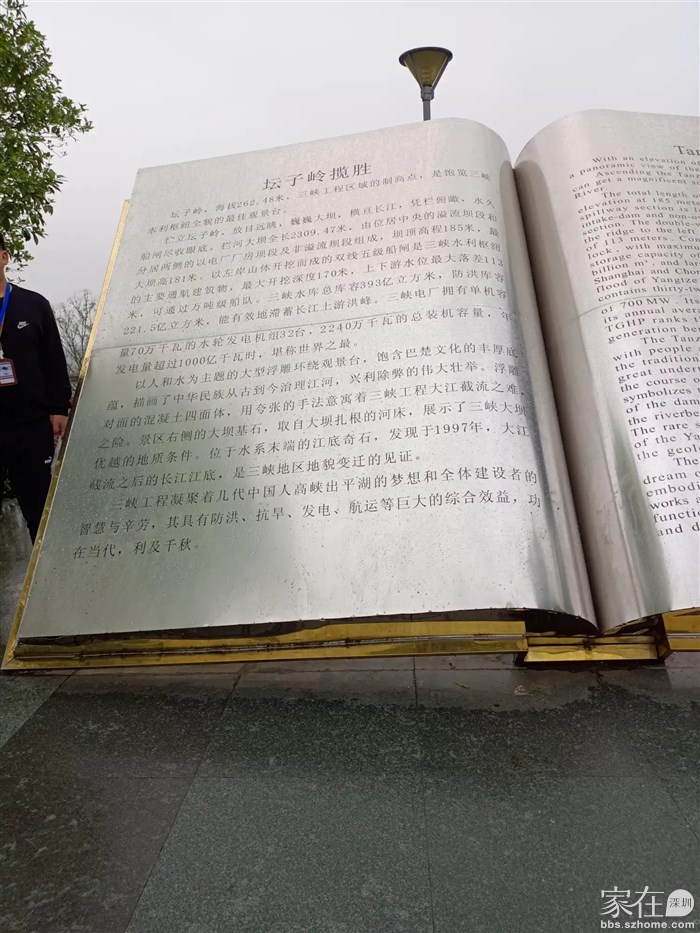 坛子岭揽胜
坛子岭，海拔262.48米，三峡工程区域的制高点，是饱览三峡
水利枢纽全貌的最佳观景台。
伫立坛子岭，放目远眺，巍巍大坝，横亘长江，凭栏俯瞰，永久
船闸尽收眼底。拦河大坝全长2309.47米，由位居中央的溢流坝段和
分居两侧的以电厂厂房坝段及非溢流坝段组成，坝顶高程185米，最
大坝高181米。以左岸山体开挖而成的双线五级船闸是三峡水利枢纽
的主要通航建筑物，最大开挖深度170米，上下游水位最大落差113
米，可通过万吨级船队。三峡水库总库容393亿立方米，防洪库容
221.5亿立方米，能有效地滞蓄长江上游洪峰。三峡电厂拥有单机容
量70万千瓦的水轮发电机组32台，2240万千瓦的总装机容量，年
发电量超过1000亿千瓦时，堪称世界之最。
以人和水为主题的大型浮雕环绕观景台，饱含巴楚文化的丰厚底
蕴，描画了中华民族从古到今治理江河，兴利除弊的伟大壮举。浮雕
对面的混凝土四面体，用夸张的手法意寓着三峡工程大江截流之难，
之险。景区右侧的大坝基石，取自大坝扎根的河床，展示了三峡大坝
优越的地质条件。位于水系末端的江底奇石，发现于1997年，大江
截流之后的长江江底，是三峡地区地貌变迁的见证。
三峡工程凝聚着几代中国人高峡出平湖的梦想和全体建设者的
智慧与辛劳，其具有防洪、抗旱、发电、航运等巨大的综合效益，功
在当代，利及千秋。
Tan
With an elevation o
a panoramic view of the
Ascending the Tanz
can get a magnificent
River.
The total length
elevation at 185 meter
spillway section is la
intake-dam and non-o
section. The double-w
the ridge to the left
of 113 meters. Con
lock. with maximum
storage capacity of
billion m³ and larg
Shanghai and Chon
flood of Yangtze
contains thirty-tw
of 700 MW. M
its annual avera
TGHP ranks th
generation bo
The Tanz
with people
the tradition
great under
the course
symbolizes
of the dam
the riverba
The rare s
of the Ya
the geolo
The
dream o
embodi
works
functio
and d
家在深圳
bbs.szhome.com